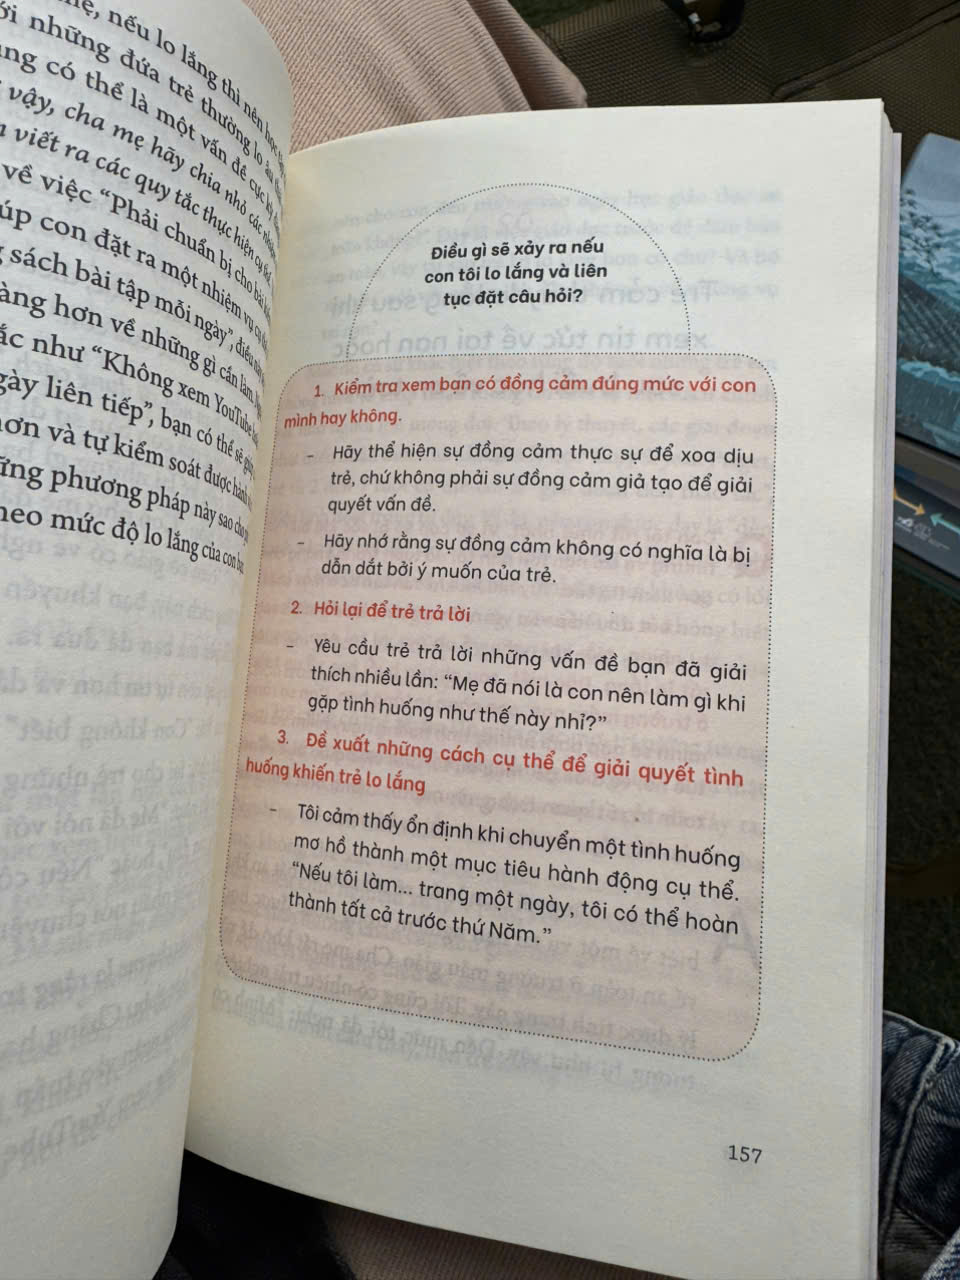 nếu lo lắng thì nên học
những đứa trẻ thường lo âu
có thể là một vấn đề cực kỳ
vậy, cha mẹ hãy chia nhỏ các
viết ra các quy tắc thực hiện cụ thể
về việc “Phải chuẩn bị cho bài
con đặt ra một nhiệm vụ
sách bài tập mỗi ngày”, điều này
hơn về những gì cần làm
như “Không xem YouTube
liên tiếp”, bạn có thể sẽ
và tự kiểm soát được hành
phương pháp này sao cho
mức độ lo lắng của con bạn.
Điều gì sẽ xảy ra nếu
con tôi lo lắng và liên
tục đặt câu hỏi?
1. Kiểm tra xem bạn có đồng cảm đúng mức với con
mình hay không.
– Hãy thể hiện sự đồng cảm thực sự để xoa dịu
trẻ, chứ không phải sự đồng cảm giả tạo để giải
quyết vấn đề.
– Hãy nhớ rằng sự đồng cảm không có nghĩa là bị
dẫn dắt bởi ý muốn của trẻ.
2. Hỏi lại để trẻ trả lời
– Yêu cầu trẻ trả lời những vấn đề bạn đã giải
thích nhiều lần: “Mẹ đã nói là con nên làm gì khi
gặp tình huống như thế này nhỉ?”
3. Đề xuất những cách cụ thể để giải quyết tình
huống khiến trẻ lo lắng
– Tôi cảm thấy ổn định khi chuyển một tình huống
mơ hồ thành một mục tiêu hành động cụ thể.
“Nếu tôi làm... trang một ngày, tôi có thể hoàn
thành tất cả trước thứ Năm.”
157